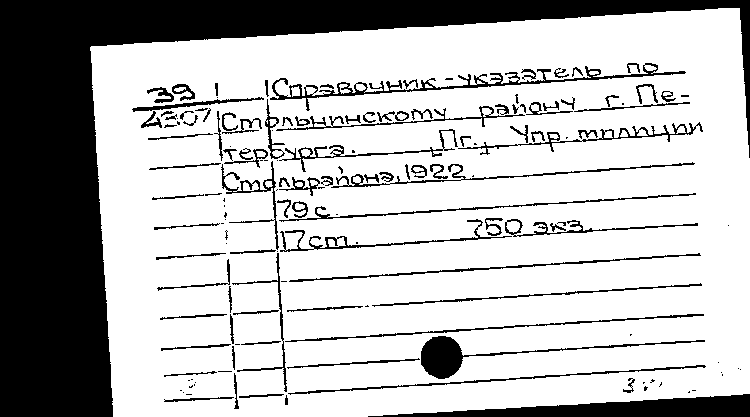 39
4307
Справочник-указатель по
Смольнинскому району г. Пе-
тербурга. [Пг.], Упр. милиции
Смольрайона, 1922.
79 с.
17 см. 750 экз.